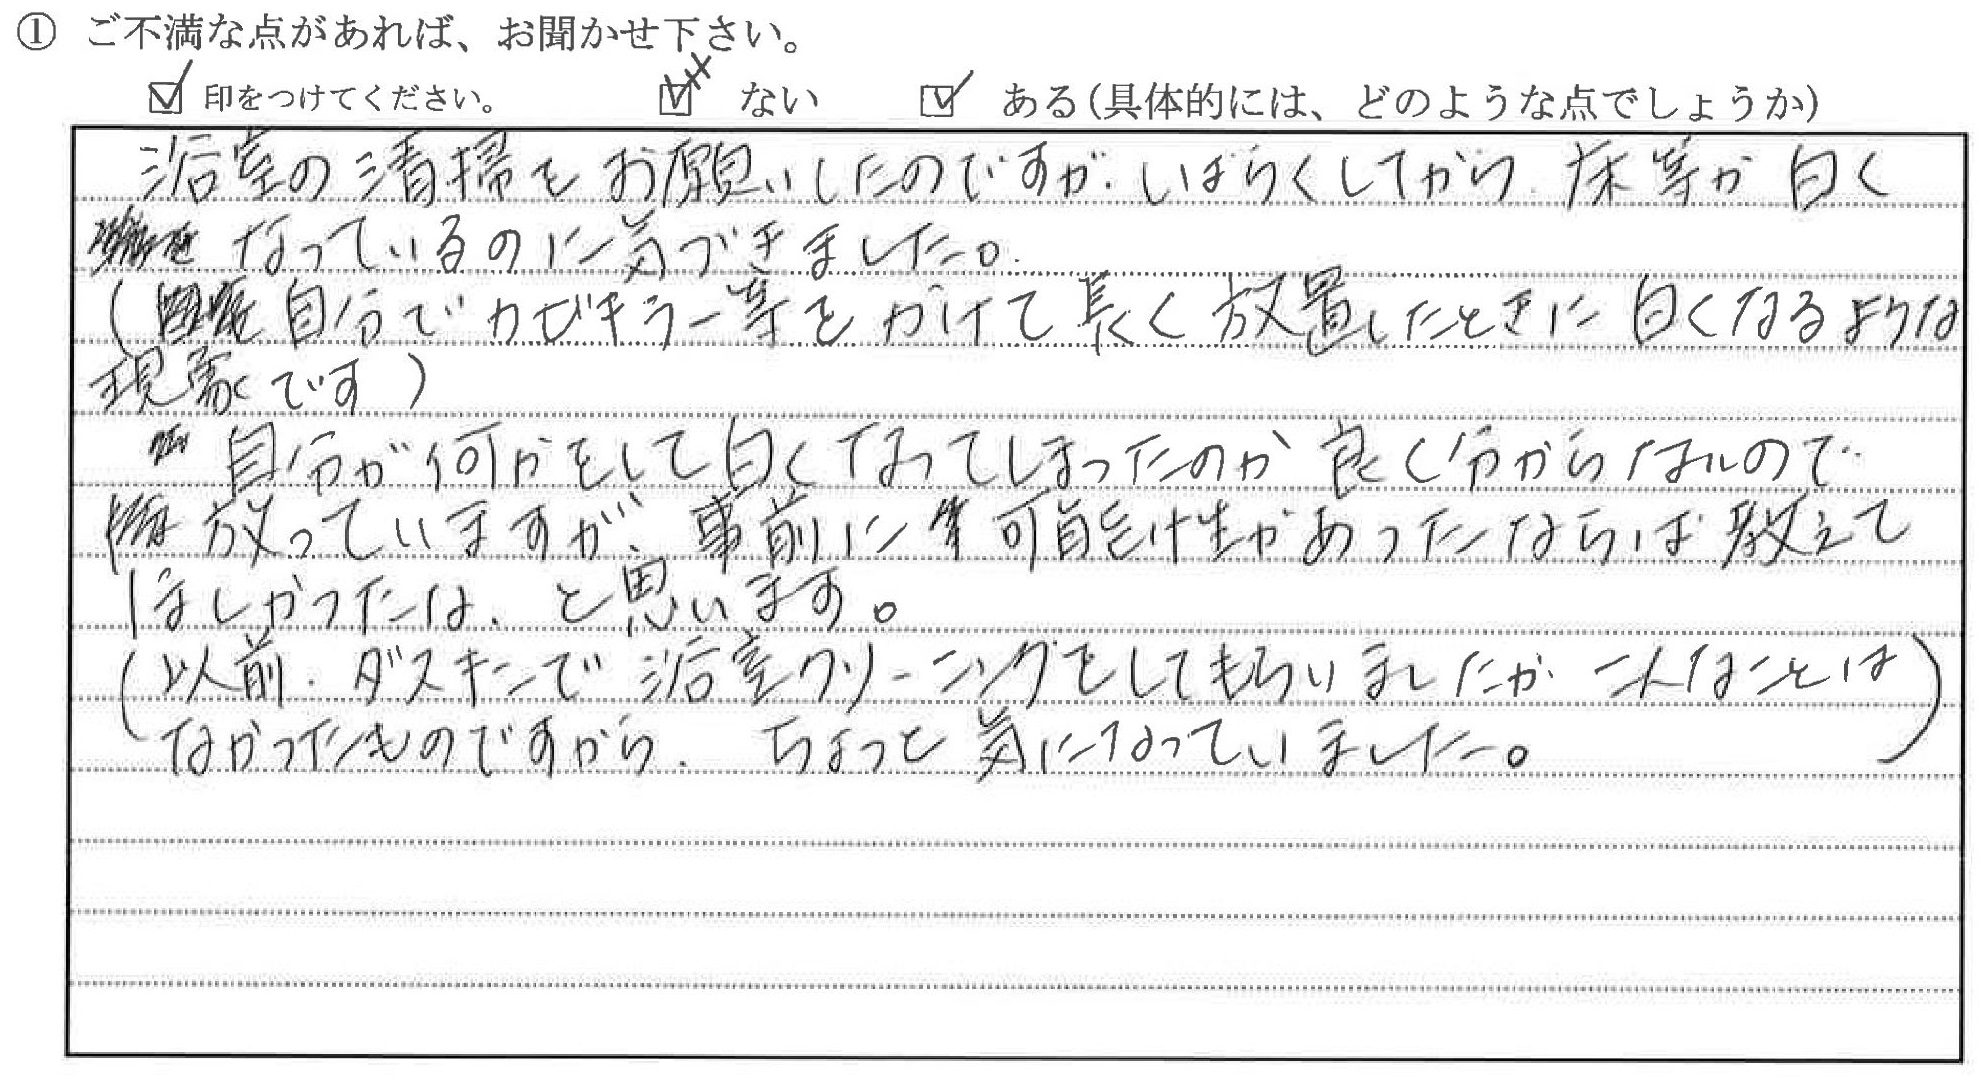 ① ご不満な点があれば、お聞かせ下さい。
☑ 印をつけてください。 ☑ ない ☑ ある(具体的には、どのような点でしょうか)
浴室の清掃をお願いしたのですが、しばらくしてから、床等が白く
なっているのに気づきました。
(自分でカビキラー等をかけて長く放置したときに白くなるような
現象です)
自分が何かをして白くなってしまったのか良く分からないので
放っていますが、事前に可能性があったならば教えて
ほしかったな、と思います。
(以前、ダスキンで浴室クリーニングをしてもらいましたが、こんなことは
なかったものですから、ちょっと気になっていました。)